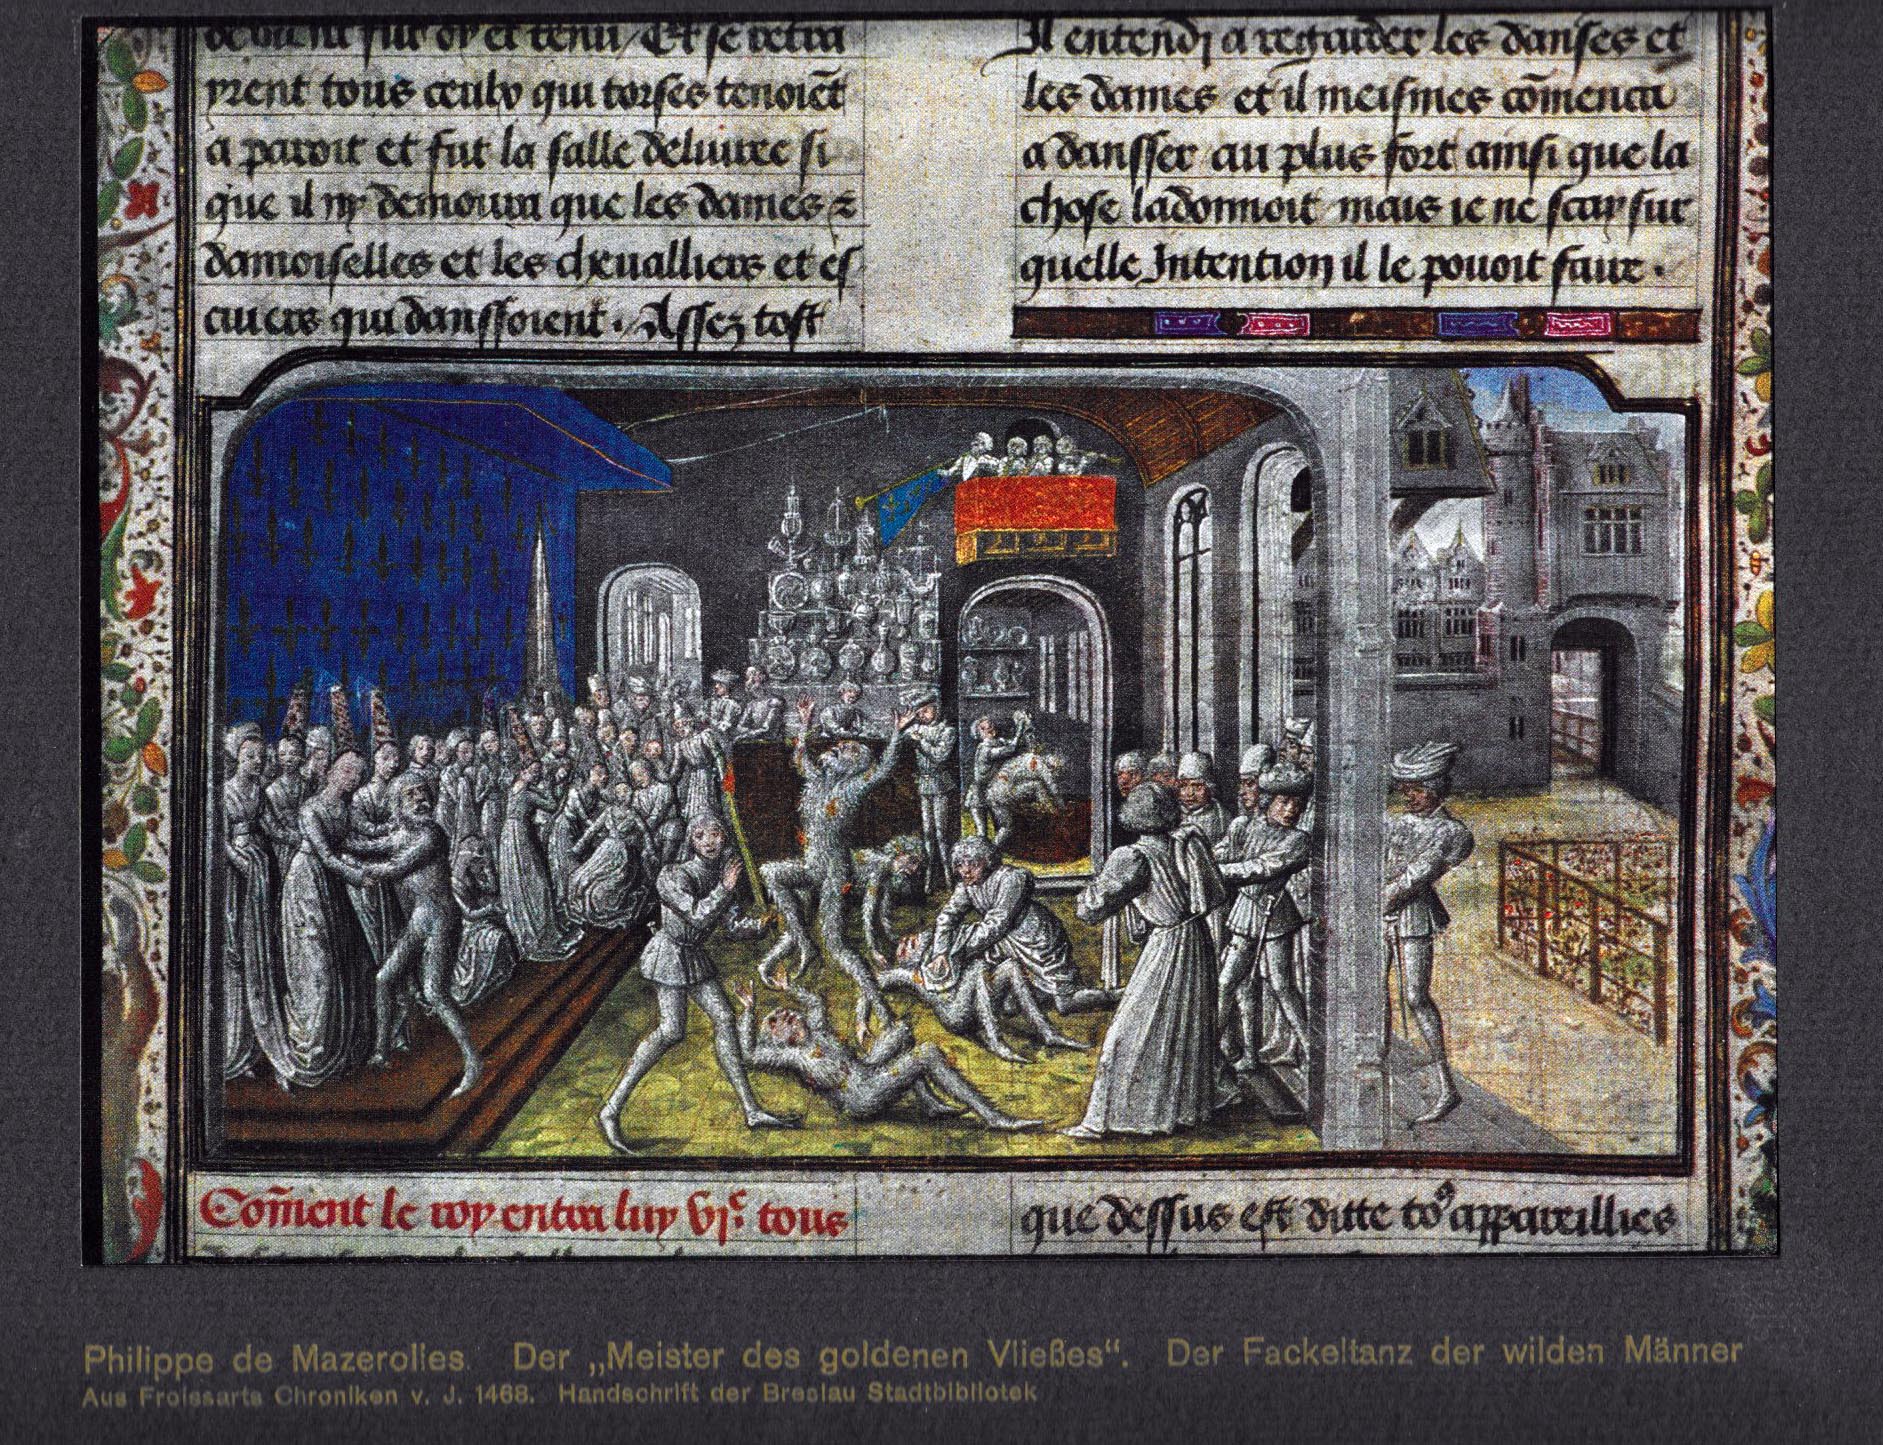 yrent tous ceulx qui torses tenoiẽt
a paroit et fut la salle deliuree si
que il ny demoura que les dames ⁊
damoiselles et les cheualliers et es
cuiers qui danssoient. Assez tost
Il entendi a regarder les danses et
les dames et il meismes cõmenca
a dansser au plus fort ainsi que la
chose ladonnoit mais ie ne scay sur
quelle Intention il le pouoit faire.
Cõment le roy entra luy vjᵉ tous
que dessus est ditte to⁹ appareillies
Philippe de Mazerolles. Der „Meister des goldenen Vließes“. Der Fackeltanz der wilden Männer
Aus Froissarts Chroniken v. J. 1468. Handschrift der Breslau Stadtbibliotek